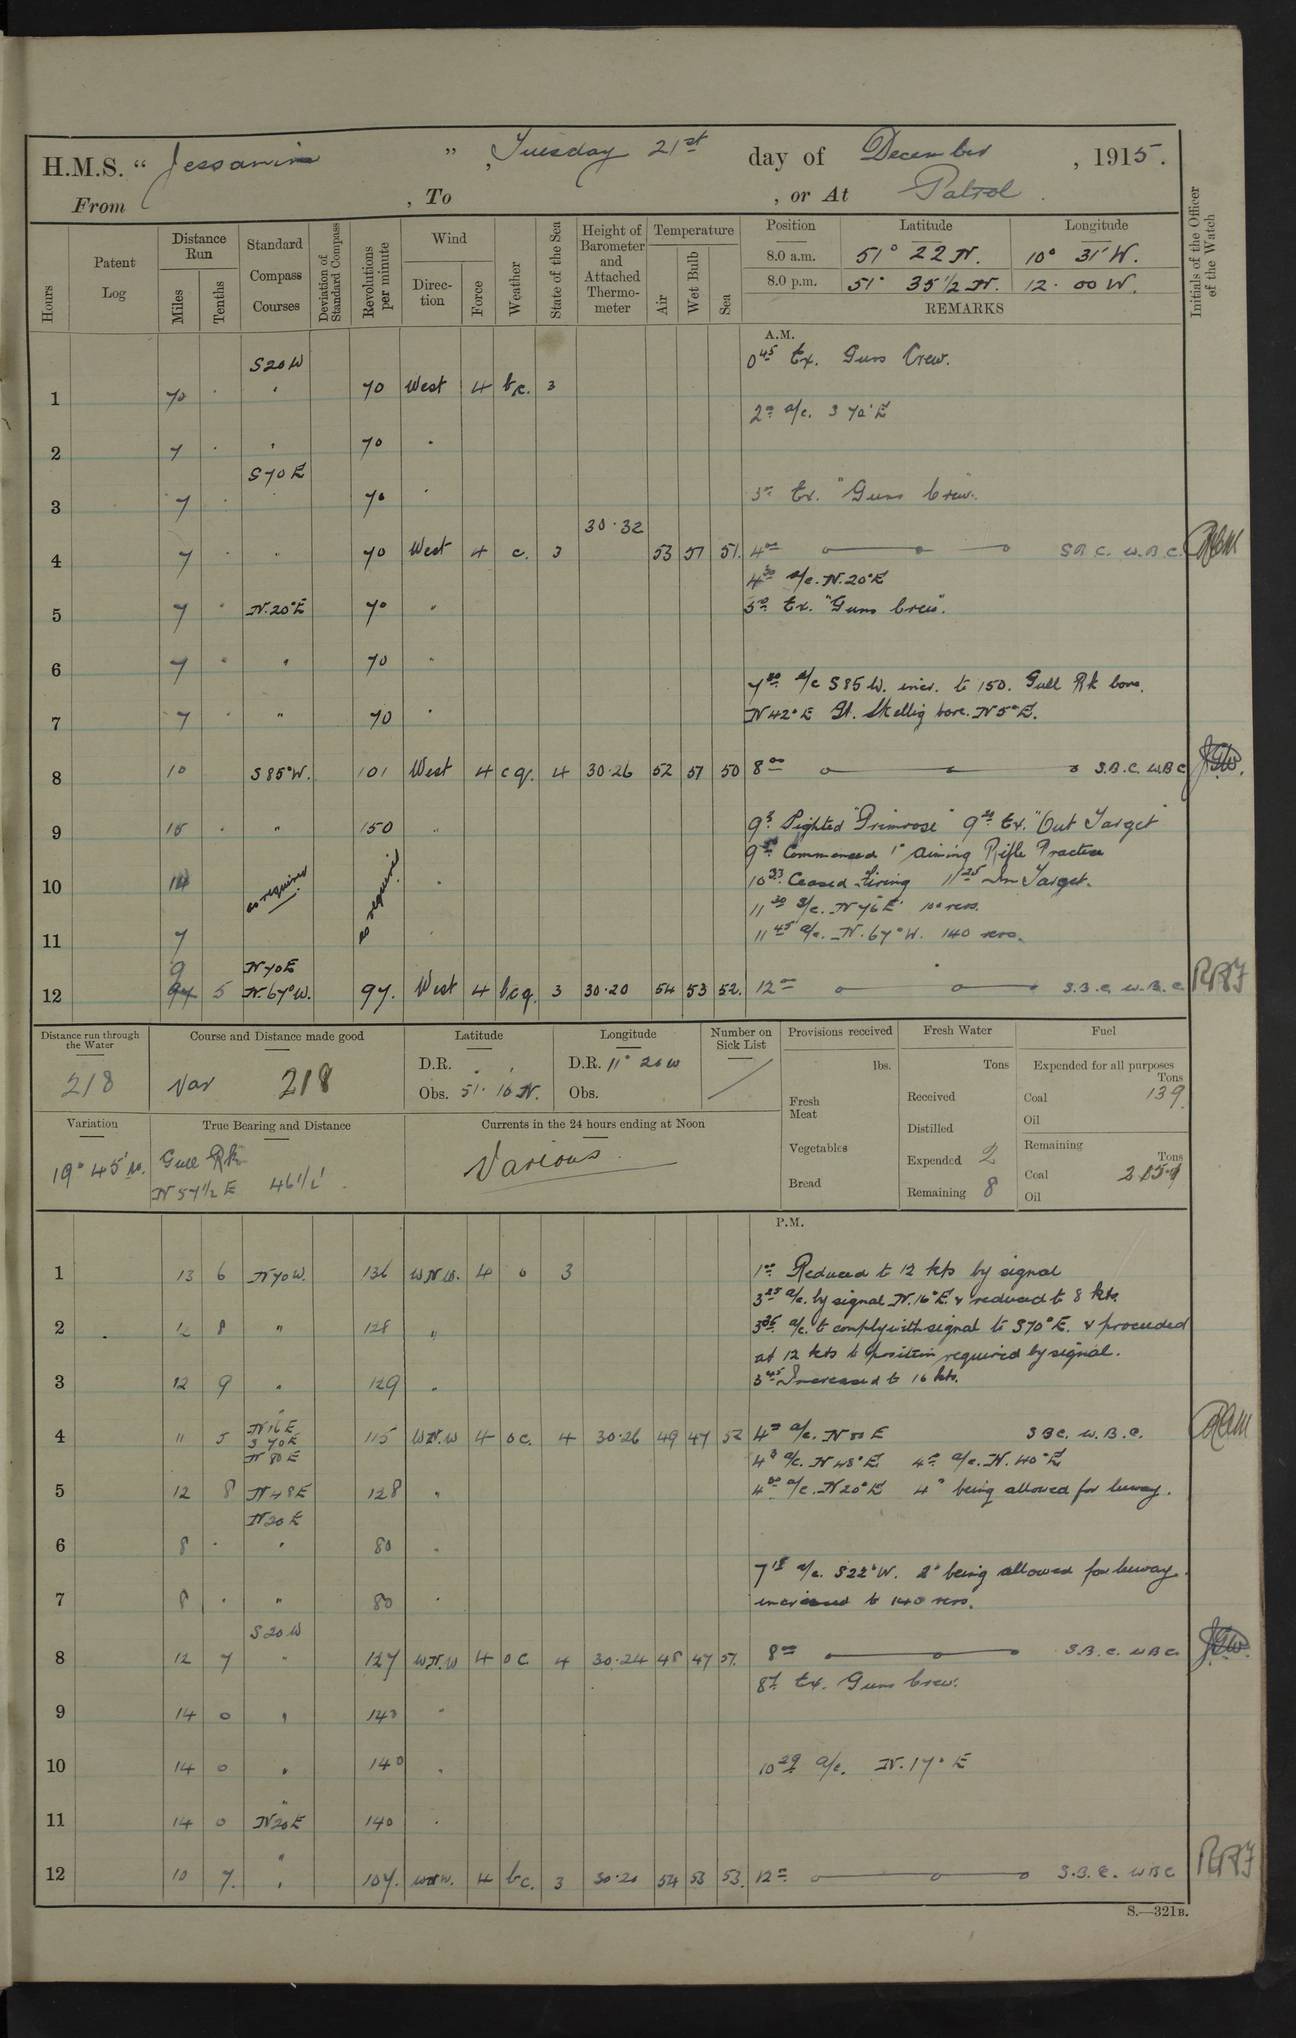 H.M.S. " Jessamine ", Tuesday 21st day of December, 1915.
From , To , or At Patrol.
Hours Patent Log Distance Run Miles Tenths Standard Compass Courses Deviation of Standard Compass Revolutions per minute Wind Direction Force Weather State of the Sea Height of Barometer and Attached Thermometer Temperature Air Wet Bulb Sea Position Latitude Longitude Initials of the Officer of the Watch
8.0 a.m. 51° 22 N. 10° 31' W.
8.0 p.m. 51° 35 1/2 N. 12. 00 W.
REMARKS
A.M.
S20W 0 45 Ex. Guns Crew.
1 70 . " 70 West 4 bc. 3
2 00 a/c. S 70° E
2 7 . " 70 "
S70E
3 7 . 70 " 3 00 Ex. "Guns Crew".
30.32
4 7 . " 70 West 4 c. 3 53 51 51. 4 00 S.B.C. W.B.C.
4 30 a/c. N. 20° E
5 7 . N.20°E 70 " 5 10 Ex. "Guns Crew".
6 7 . " 70 "
7 00 a/c S85W. incr. to 150. Gull Rk bore.
7 7 . " 70 " N42°E Gt. Skellig bore. N5°E.
8 10 S85°W. 101 West 4 cq. 4 30.26 52 51 50 8 00 S.B.C. W.B.C. JGW.
9 15 . " 150 " 9 5 Sighted "Primrose" 9 20 Ex. "Out Target"
9 50 Commenced 1" Aiming Rifle Practice
10 14 as required as required " 10 33 Ceased firing 11 25 In Target.
11 30 a/c. N 76 E 100 revs.
11 7 " 11 45 a/c. N. 67° W. 140 revs.
9 N70E
12 97 5 N.67°W. 97. West 4 bcq. 3 30.20 54 53 52. 12 00 S.B.C. W.B.C. RRJ
Distance run through the Water Course and Distance made good Latitude Longitude Number on Sick List Provisions received Fresh Water Fuel
218 Var 218 D.R. D.R. 11° 20 W lbs. Tons Expended for all purposes Tons
Obs. 51. 16 N. Obs. Fresh Meat Received Coal 139.
Distilled Oil
Variation True Bearing and Distance Currents in the 24 hours ending at Noon
19° 45' W. Gull Rk Various Vegetables Expended 2 Remaining Tons
N 57 1/2 E 46 1/2' Bread Remaining 8 Coal
Oil
P.M.
1 13 6 N70W. 136 W.N.W. 4 o 3 1 00 Reduced to 12 kts by signal
3 25 a/c. by signal N.16°E. & reduced to 8 kts.
2 12 8 " 128 " 3 35 a/c. to comply with signal to S70°E. & proceeded
at 12 kts to position required by signal.
3 12 9 " 129 " 3 45 Increased to 16 kts.
N16E
4 11 5 S70E 115 W.N.W 4 oc. 4 30.26 49 47 52 4 00 a/c. N 80 E S.B.C. W.B.C.
N80E a/c. N 48° E. a/c. N. 40° E.
5 12 8 N48E 128 " a/c. N20°E 4° being allowed for leeway.
N20E
6 8 . " 80 "
7 15 a/c. S22°W. 2° being allowed for leeway.
7 8 . " 80 " increased to 140 revs.
S20W
8 12 7 " 127 W.N.W 4 oc 4 30.24 48 47 51. 8 00 S.B.C. W.B.C. JGW.
Ex. Guns Crew.
9 14 0 " 140 "
10 14 0 " 140 " 10 29 a/c. N. 17° E
11 14 0 N20E 140 "
12 10 7. " 107. W.N.W. 4 bc. 3 30.20 54 53 53. 12 00 S.B.C. W.B.C. RRJ
S.—321B.